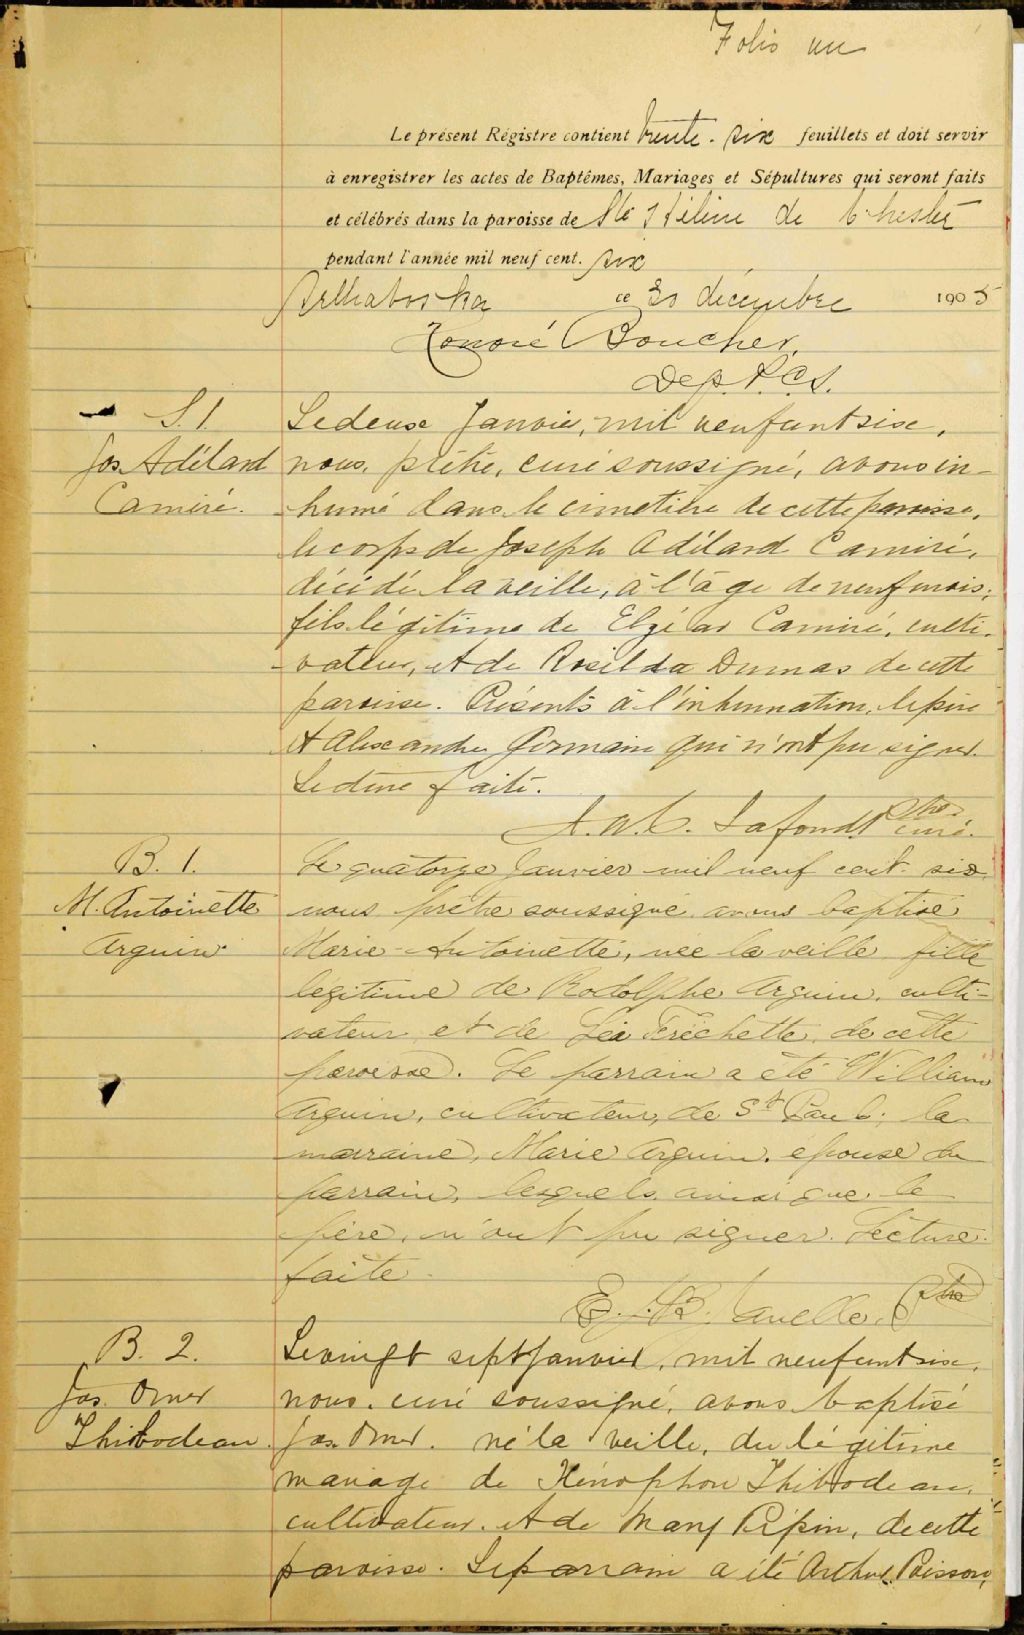 Folio un
Le présent Régistre contient trente-six feuillets et doit servir
à enregistrer les actes de Baptêmes, Mariages et Sépultures qui seront faits
et célébrés dans la paroisse de Ste Hélène de Chester
pendant l'année mil neuf cent. six
Arthabaska ce 30 décembre 1905
Honoré Boucher,
Dep. P.C.S.
S. 1 Le deux Janvier, mil neuf cent six,
Jos. Adélard nous, prêtre, curé soussigné, avons in-
Camiré. humé dans le cimetière de cette paroisse,
le corps de Joseph Adélard Camiré,
décédé la veille, à l'âge de neuf mois,
fils légitime de Elzéar Camiré, culti-
vateur, et de Rosilda Dumas de cette
paroisse. Présents à l'inhumation, le père
et Alexandre Germain qui n'ont pu signer.
Lecture faite.
Lafond Ptre curé.
B. 1. Le quatorze Janvier mil neuf cent six
M. Antoinette nous prêtre soussigné avons baptisé
Arguin Marie-Antoinette, née la veille, fille
légitime de Rodolphe Arguin, culti-
vateur et de Léa Fréchette, de cette
paroisse. Le parrain a été William
Arguin, cultivateur, de St Paul; la
marraine, Marie Arguin, épouse du
parrain, lesquels, ainsi que le
père, n'ont pu signer. Lecture
faite.
Ptre
B. 2. Le vingt sept Janvier, mil neuf cent six,
Jos. Omer nous, curé soussigné, avons baptisé
Thibodeau. Jos. Omer, né la veille, du légitime
mariage de Xénophon Thibodeau,
cultivateur, et de Mary Pépin, de cette
paroisse. Le parrain a été Arthur Poisson,